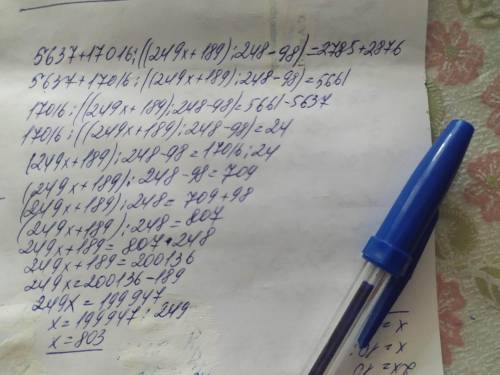 5637+17016:((249x+189):248-98)=2785+2876
5637+17016:((249x+189):248-98)=5661
17016:((249x+189):248-98)=5661-5637
17016:((249x+189):248-98)=24
(249x+189):248-98=17016:24
(249x+189):248-98=709
(249x+189):248=709+98
(249x+189):248=807
249x+189=807*248
249x+189=200136
249x=200136-189
249x=199947
x=199947:249
x=803